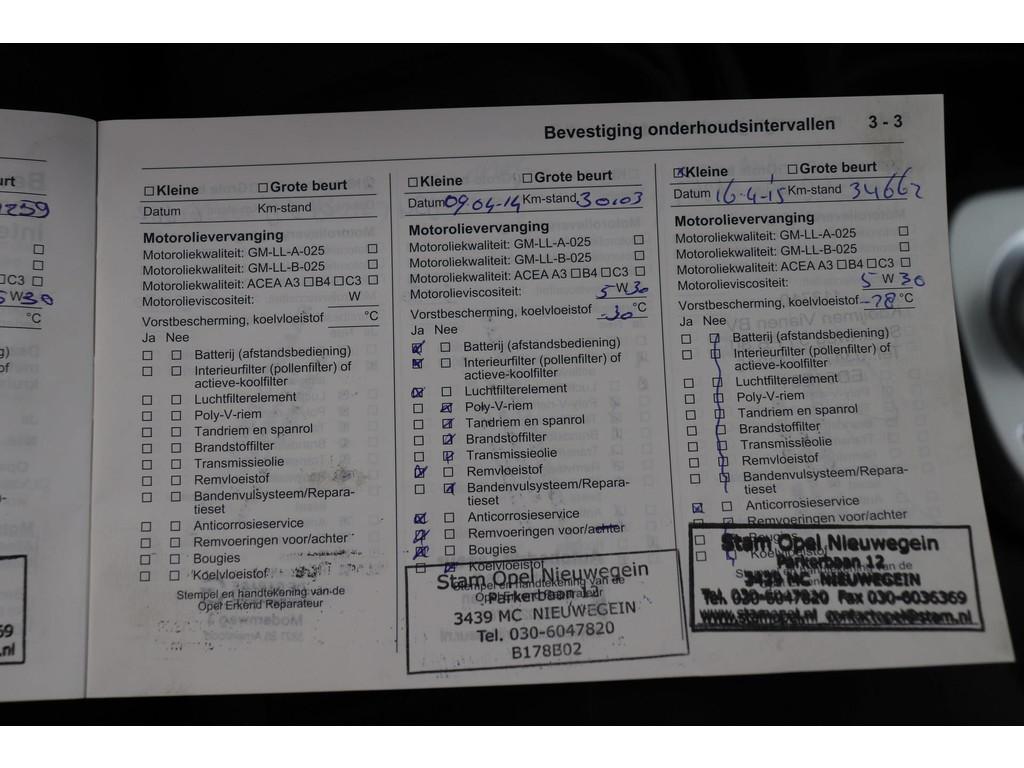 Bevestiging onderhoudsintervallen 3 - 3
Kleine Grote beurt
Datum Km-stand
Motorolievervanging
Motoroliekwaliteit: GM-LL-A-025
Motoroliekwaliteit: GM-LL-B-025
Motoroliekwaliteit: ACEA A3 B4 C3
Motorolieviscositeit: W
Vorstbescherming, koelvloeistof °C
Ja Nee
Batterij (afstandsbediening)
Interieurfilter (pollenfilter) of
actieve-koolfilter
Luchtfilterelement
Poly-V-riem
Tandriem en spanrol
Brandstoffilter
Transmissieolie
Remvloeistof
Bandenvulsysteem/Repara-
tieset
Anticorrosieservice
Remvoeringen voor/achter
Bougies
Koelvloeistof
Stempel en handtekening van de
Opel Erkend Reparateur
Kleine Grote beurt
Datum 09-04-14 Km-stand 30.03
Motorolievervanging
Motoroliekwaliteit: GM-LL-A-025
Motoroliekwaliteit: GM-LL-B-025
Motoroliekwaliteit: ACEA A3 B4 C3
Motorolieviscositeit: 5 W 30
Vorstbescherming, koelvloeistof -30 °C
Ja Nee
Batterij (afstandsbediening)
Interieurfilter (pollenfilter) of
actieve-koolfilter
Luchtfilterelement
Poly-V-riem
Tandriem en spanrol
Brandstoffilter
Transmissieolie
Remvloeistof
Bandenvulsysteem/Repara-
tieset
Anticorrosieservice
Remvoeringen voor/achter
Bougies
Koelvloeistof
Stempel en handtekening van de
Stam Opel Nieuwegein
Parkerbaan 12
3439 MC NIEUWEGEIN
Tel. 030-6047820
B178B02
Kleine Grote beurt
Datum 16-4-15 Km-stand 34662
Motorolievervanging
Motoroliekwaliteit: GM-LL-A-025
Motoroliekwaliteit: GM-LL-B-025
Motoroliekwaliteit: ACEA A3 B4 C3
Motorolieviscositeit: 5 W 30
Vorstbescherming, koelvloeistof -28 °C
Ja Nee
Batterij (afstandsbediening)
Interieurfilter (pollenfilter) of
actieve-koolfilter
Luchtfilterelement
Poly-V-riem
Tandriem en spanrol
Brandstoffilter
Transmissieolie
Remvloeistof
Bandenvulsysteem/Repara-
tieset
Anticorrosieservice
Remvoeringen voor/achter
Bougies
Koelvloeistof
Stam Opel Nieuwegein
Parkerbaan 12
3439 MC NIEUWEGEIN
Tel. 030-6047820 Fax 030-6036369
www.stamopel.nl contactopel@stam.nl